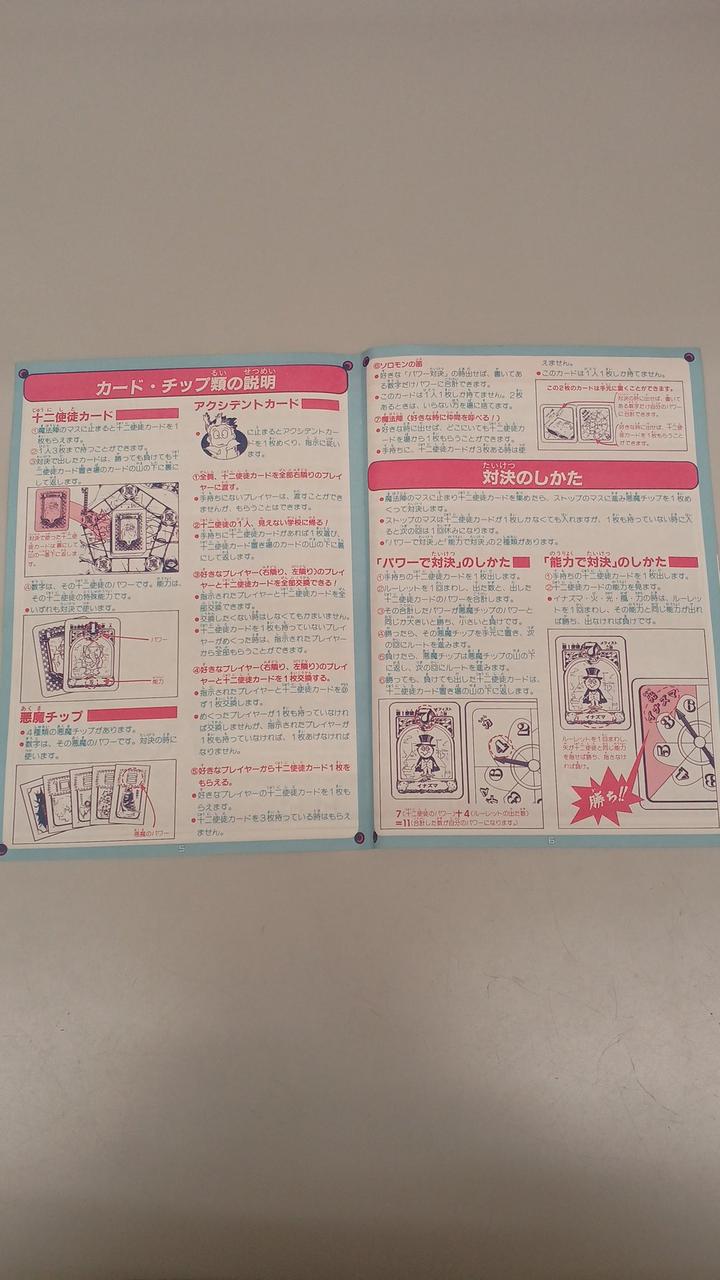 カード・チップ類の説明
十二使徒カード
①魔法陣のマスに止まると十二使徒カードを1
枚もらえます。
②1人3枚まで持つことができます。
③対決で出したカードは、勝っても負けても十
二使徒カード置き場のカードの山の下に裏に
して返します。
対決で使った十二使
徒カードは裏にして
山の一番下に返しま
す。
④数字は、その十二使徒のパワーです。能力は、
その十二使徒の特殊能力です。
●いずれも対決で使います。
パワー
能力
悪魔チップ
●4種類の悪魔チップがあります。
●数字は、その悪魔のパワーです。対決の時に
使います。
悪魔のパワー
アクシデントカード
●
に止まるとアクシデントカー
ドを1枚めくり、指示に従い
ます。
①全員、十二使徒カードを全部右隣りのプレイ
ヤーに渡す。
●手持ちにないプレイヤーは、渡すことができ
ませんが、もらうことはできます。
②十二使徒の1人、見えない学校に帰る！
●手持ちに十二使徒カードがあれば1枚選び、
十二使徒カード置き場のカードの山の下に裏
にして返します。
③好きなプレイヤー(右隣り、左隣り)のプレイ
ヤーと十二使徒カードを全部交換できる！
●指示されたプレイヤーと十二使徒カードを全
部交換できます。
●交換したくない時はしなくてもかまいません。
●十二使徒カードを1枚も持っていないプレイ
ヤーがめくった時は、指示されたプレイヤー
から全部もらうことができます。
④好きなプレイヤー(右隣り、左隣り)のプレイ
ヤーと十二使徒カードを1枚交換する。
●指示されたプレイヤーと十二使徒カードを必
ず1枚交換します。
●めくったプレイヤーが1枚も持っていなけれ
ば交換しませんが、指示されたプレイヤーが
1枚も持っていなければ、1枚あげなければ
なりません。
⑤好きなプレイヤーから十二使徒カード1枚を
もらえる。
●好きなプレイヤーの十二使徒カードを1枚も
らえます。
●十二使徒カードを3枚持っている時はもらえ
ません。
5
⑥ソロモンの笛
●好きな「パワー対決」の時出せば、書いてあ
る数字だけパワーに合計できます。
●このカードは1人1枚しか持てません。2枚
あるときは、いらない方を場に捨てます。
⑦魔法陣（好きな時に仲間を呼べる！）
●好きな時に出せば、どこにいても十二使徒カ
ードを場から1枚もらうことができます。
●手持ちに、十二使徒カードが3枚ある時は使
えません。
●このカードは1人1枚しか持てません。
この2枚のカードは手元に置くことができます。
対決の時に出せば、書いて
ある数字だけ自分のパワー
に合計できます。
好きな時に出せば、十二
使徒カードを1枚もらうことが
できます。
対決のしかた
●魔法陣のマスに止まり十二使徒カードを集めたら、ストップのマスに進み悪魔チップを1枚め
くって対決します。
●ストップのマスは十二使徒カードが1枚しかなくても入れますが、1枚も持っていない時に入
ると次の回は1回休みになります。
●「パワーで対決」と「能力で対決」の2種類があります。
「パワーで対決」のしかた
①手持ちの十二使徒カードを1枚出します。
②ルーレットを1回まわし、出た数と、出した
十二使徒カードのパワーを合計します。
③その合計したパワーが悪魔チップのパワーと
同じか大きいと勝ち、小さいと負けです。
④勝ったら、その悪魔チップを手元に置き、次
の回にルートを進みます。
⑤負けたら、悪魔チップは悪魔チップの山の下
に返し、次の回にルートを進みます。
⑥勝っても、負けても出した十二使徒カードは、
十二使徒カード置き場の山の下に返します。
第1使徒
7
イナズマ
4
7(十二使徒のパワー)＋4(ルーレットの出た数)
＝11(合計した数が自分のパワーになります。)
「能力で対決」のしかた
①手持ちの十二使徒カードを1枚出します。
②十二使徒カードの能力を見ます。
●イナズマ・火・光・風・力の時は、ルーレッ
トを1回まわし、その能力と同じ能力が出れ
ば勝ち、出なければ負けです。
第1使徒
7
イナズマ
イナズマ
8
6
3
ルーレットを1回まわし、
矢が十二使徒と同じ能力
を指せば勝ち、指さなけ
れば負け。
勝ち!!
6